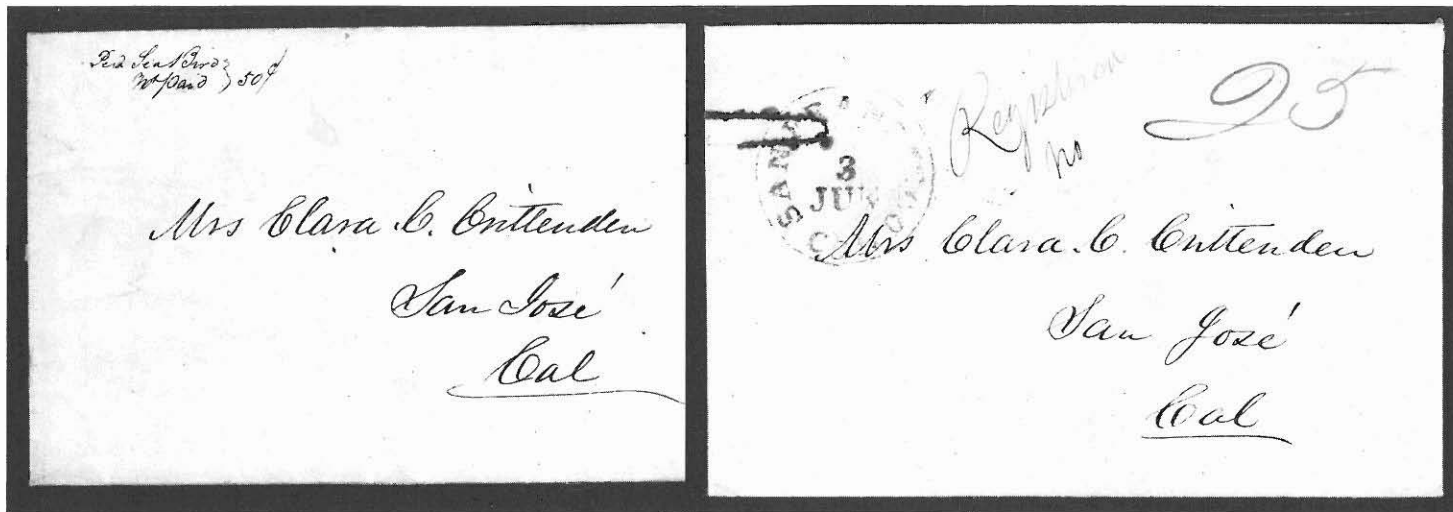 Per Sea Bird
Wt paid } 50¢
Mrs Clara. C. Crittenden
San José
Cal
SAN FRANCISCO
3
JUN
Registered
no
25
Mrs Clara. C. Crittenden
San José
Cal